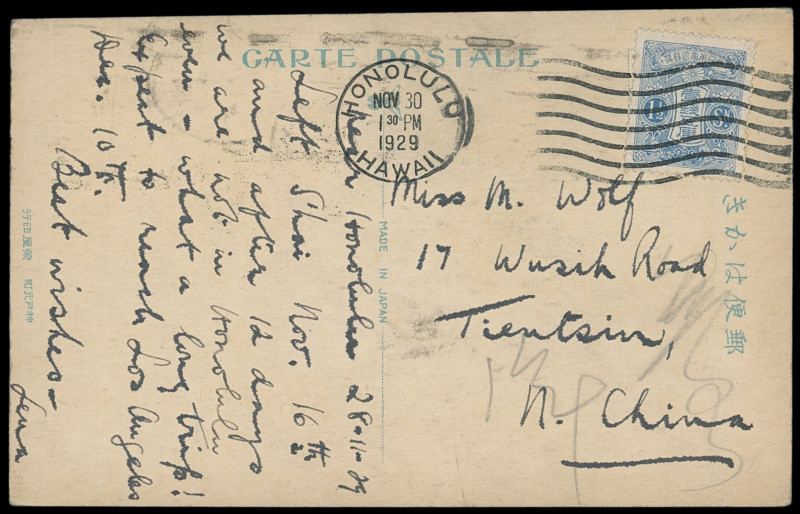 CARTE POSTALE
HONOLULU
NOV 30
1 30 PM
1929
HAWAII
near Honolulu 28-11-29
Left Shai Nov. 16th
and after 12 days
we are not in Honolulu
even - what a long trip!
Expect to reach Los Angeles
Dec. 10th.
Best wishes -
Lena
MADE IN JAPAN
Miss M. Wolf
17 Wusih Road
Tientsin,
N. China
きかは便郵